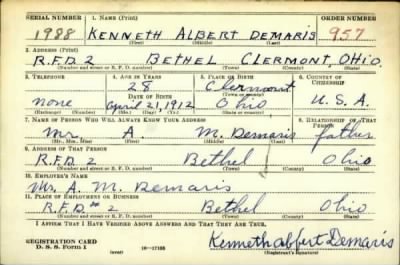 SERIAL NUMBER 1. NAME (Print) ORDER NUMBER
1988 KENNETH ALBERT DEMARIS 957
(First) (Middle) (Last)
2. ADDRESS (Print)
R.F.D. 2 BETHEL CLERMONT, OHIO.
(Number and street or R. F. D. number) (Town) (County) (State)
3. TELEPHONE 4. AGE IN YEARS 5. PLACE OF BIRTH 6. COUNTRY OF CITIZENSHIP
28 Clermont
DATE OF BIRTH (Town or county)
none April 21, 1912 Ohio U.S.A.
(Exchange) (Number) (Mo.) (Day) (Yr.) (State or country)
7. NAME OF PERSON WHO WILL ALWAYS KNOW YOUR ADDRESS 8. RELATIONSHIP OF THAT PERSON
Mr. A. M. Demaris father
(Mr., Mrs., Miss) (First) (Middle) (Last)
9. ADDRESS OF THAT PERSON
R.F.D. 2 Bethel Ohio
(Number and street or R. F. D. number) (Town) (County) (State)
10. EMPLOYER'S NAME
Mr. A. M. Demaris
11. PLACE OF EMPLOYMENT OR BUSINESS
R.F.D. 2 Bethel Ohio
(Number and street or R. F. D. number) (Town) (County) (State)
I AFFIRM THAT I HAVE VERIFIED ABOVE ANSWERS AND THAT THEY ARE TRUE.
REGISTRATION CARD
D. S. S. Form 1 (over) 16—17105
Kenneth Albert Demaris